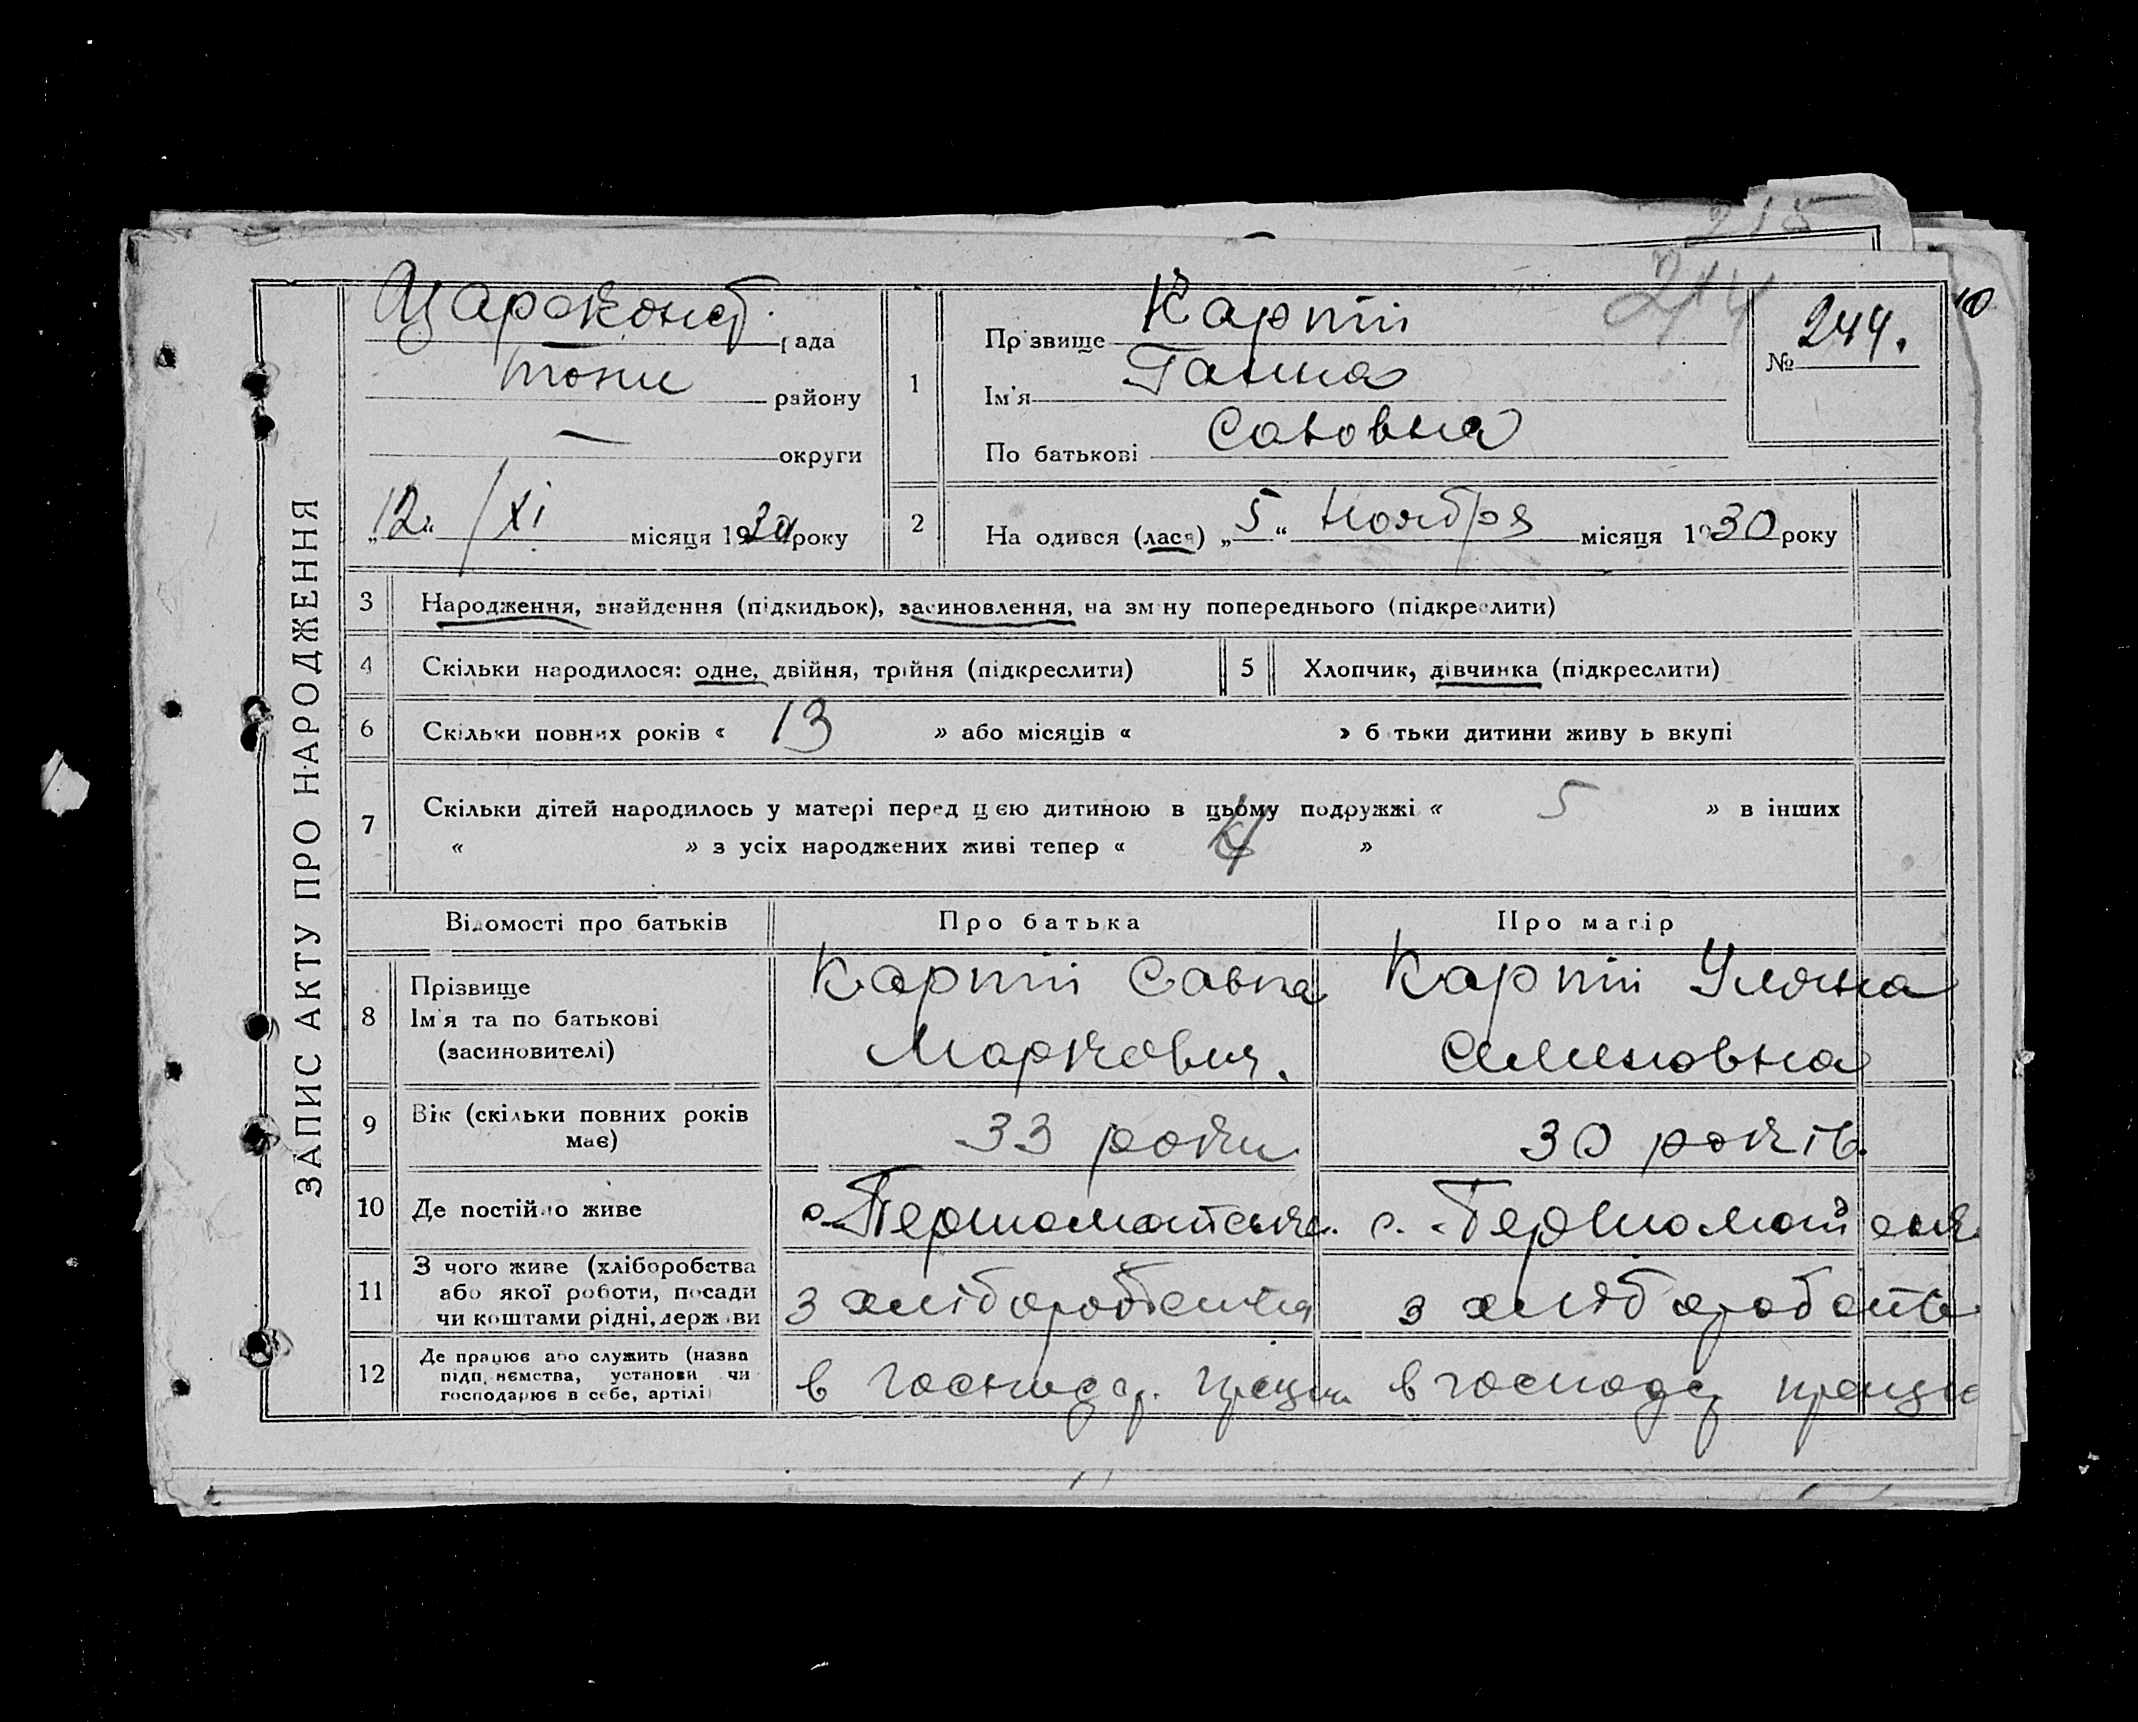 215
214
ЗАПИС АКТУ ПРО НАРОДЖЕННЯ
Цароконст. рада
тони району
— округи
„12“ /XI місяця 1930 року
1
Прізвище Карпті
Ім'я Ганна
По батькові Савовна
№ 244.
10
2 На одився (лася) „5“ Ноября місяця 1930 року
3 Народження, знайдення (підкидьок), засиновлення, на зміну попереднього (підкреслити)
4 Скільки народилося: одне, двійня, трійня (підкреслити)
5 Хлопчик, дівчинка (підкреслити)
6 Скільки повних років « 13 » або місяців « » б тьки дитини живу ь вкупі
7 Скільки дітей народилось у матері перед цією дитиною в цьому подружжі « 5 » в інших
« » з усіх народжених живі тепер « 4 »
Відомості про батьків Про батька Про матір
8 Прізвище
Ім'я та по батькові
(засиновителі)
Карпті Савпа
Маркович.
Карпті Уляна
Семеновна
9 Вік (скільки повних років
має)
33 роки
30 років.
10 Де постійно живе
с. Першомайське.
с. Першомайськ
11 З чого живе (хліборобства
або якої роботи, посади
чи коштами рідні, держ ви
з хліборобства
з хліборобств
12 Де працює або служить (назва
підп. ємства, установи чи
господарює в себе, артілі)
в господар. працює
в господар працює